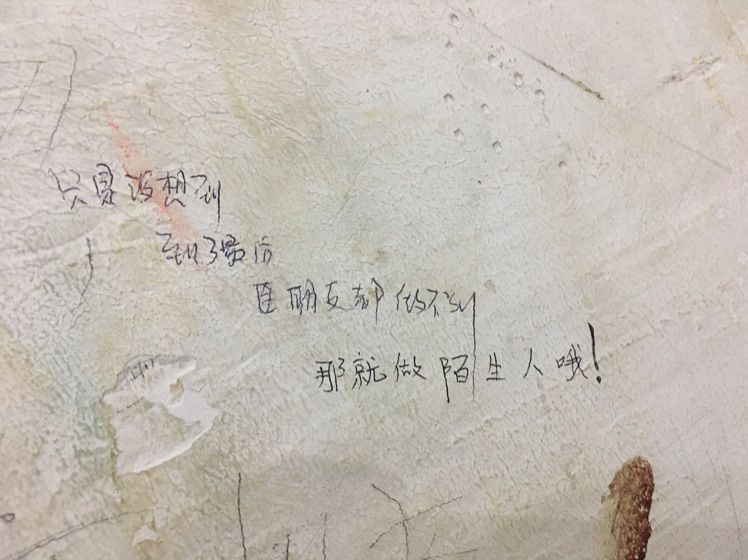 只是没想到
到了最后
连朋友都做不到
那就做陌生人哦!